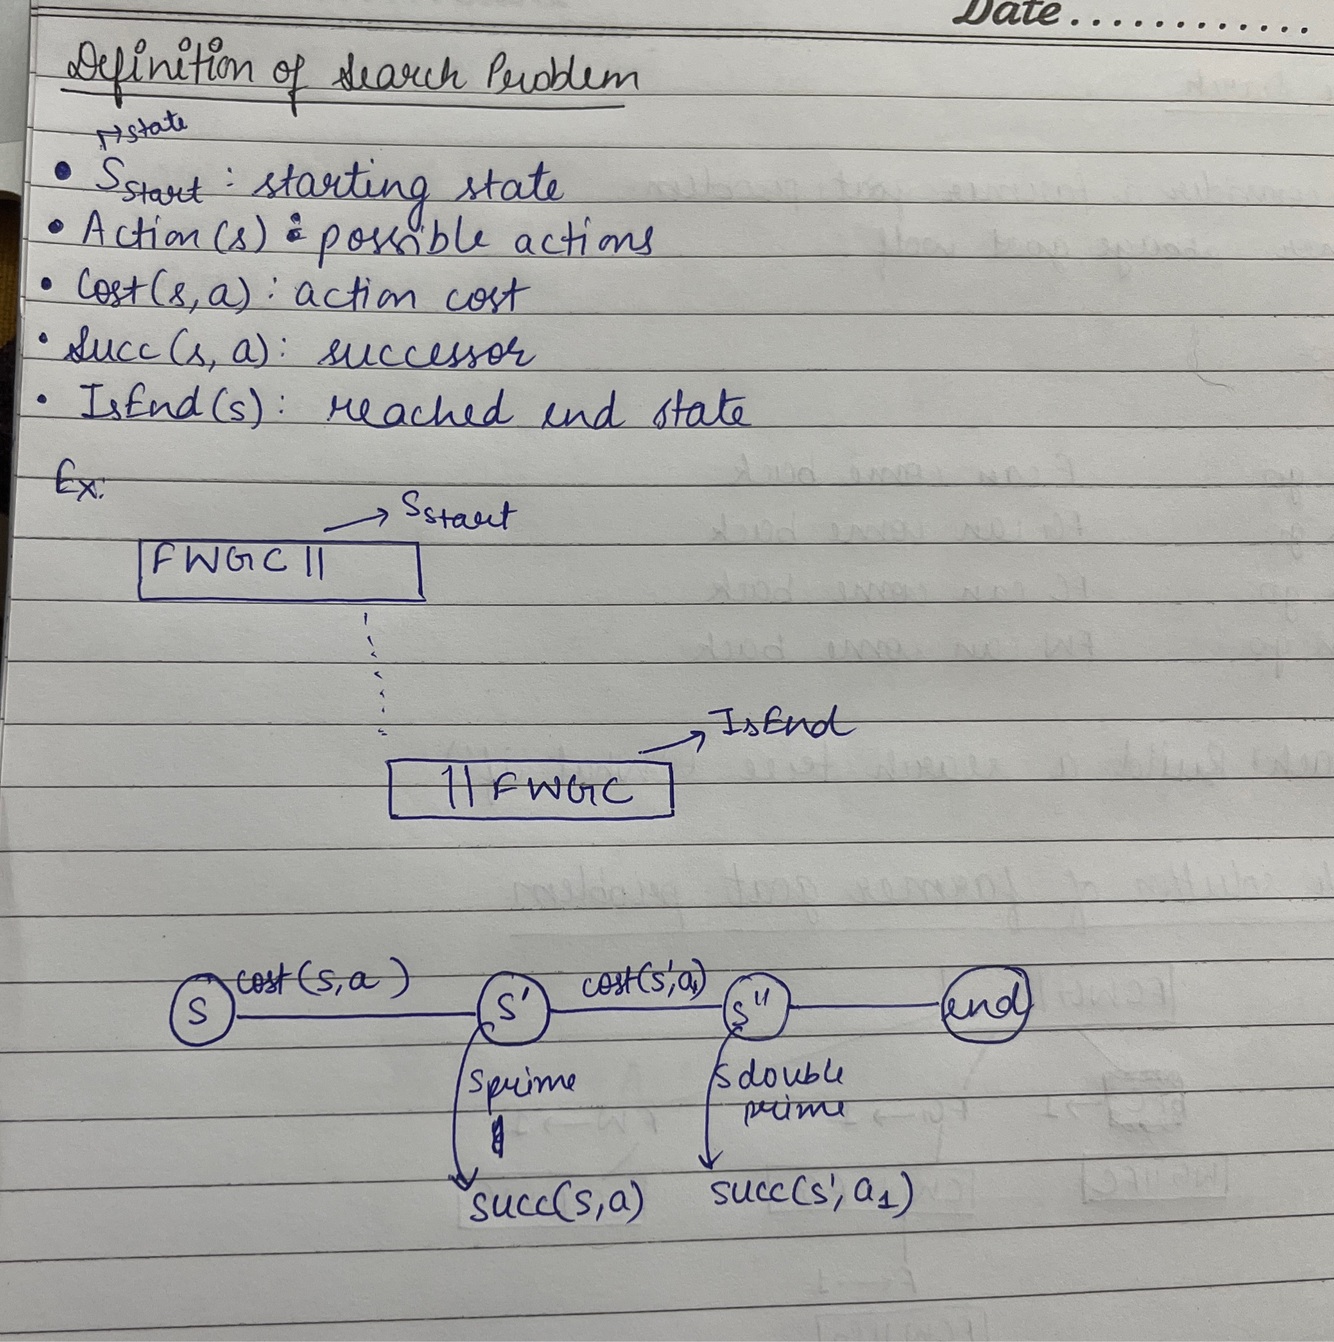 Date............
Definition of Search Problem
↱state
• Sstart : starting state
• Action(s) : possible actions
• Cost(s, a) : action cost
• Succ(s, a) : successor
• IsEnd(s) : reached end state
Ex:
→ Sstart
FWGC ||
→ IsEnd
|| FWGC
S cost(s, a) S' cost(s', a1) S" end
s prime s double
prime
succ(s, a) succ(s', a1)